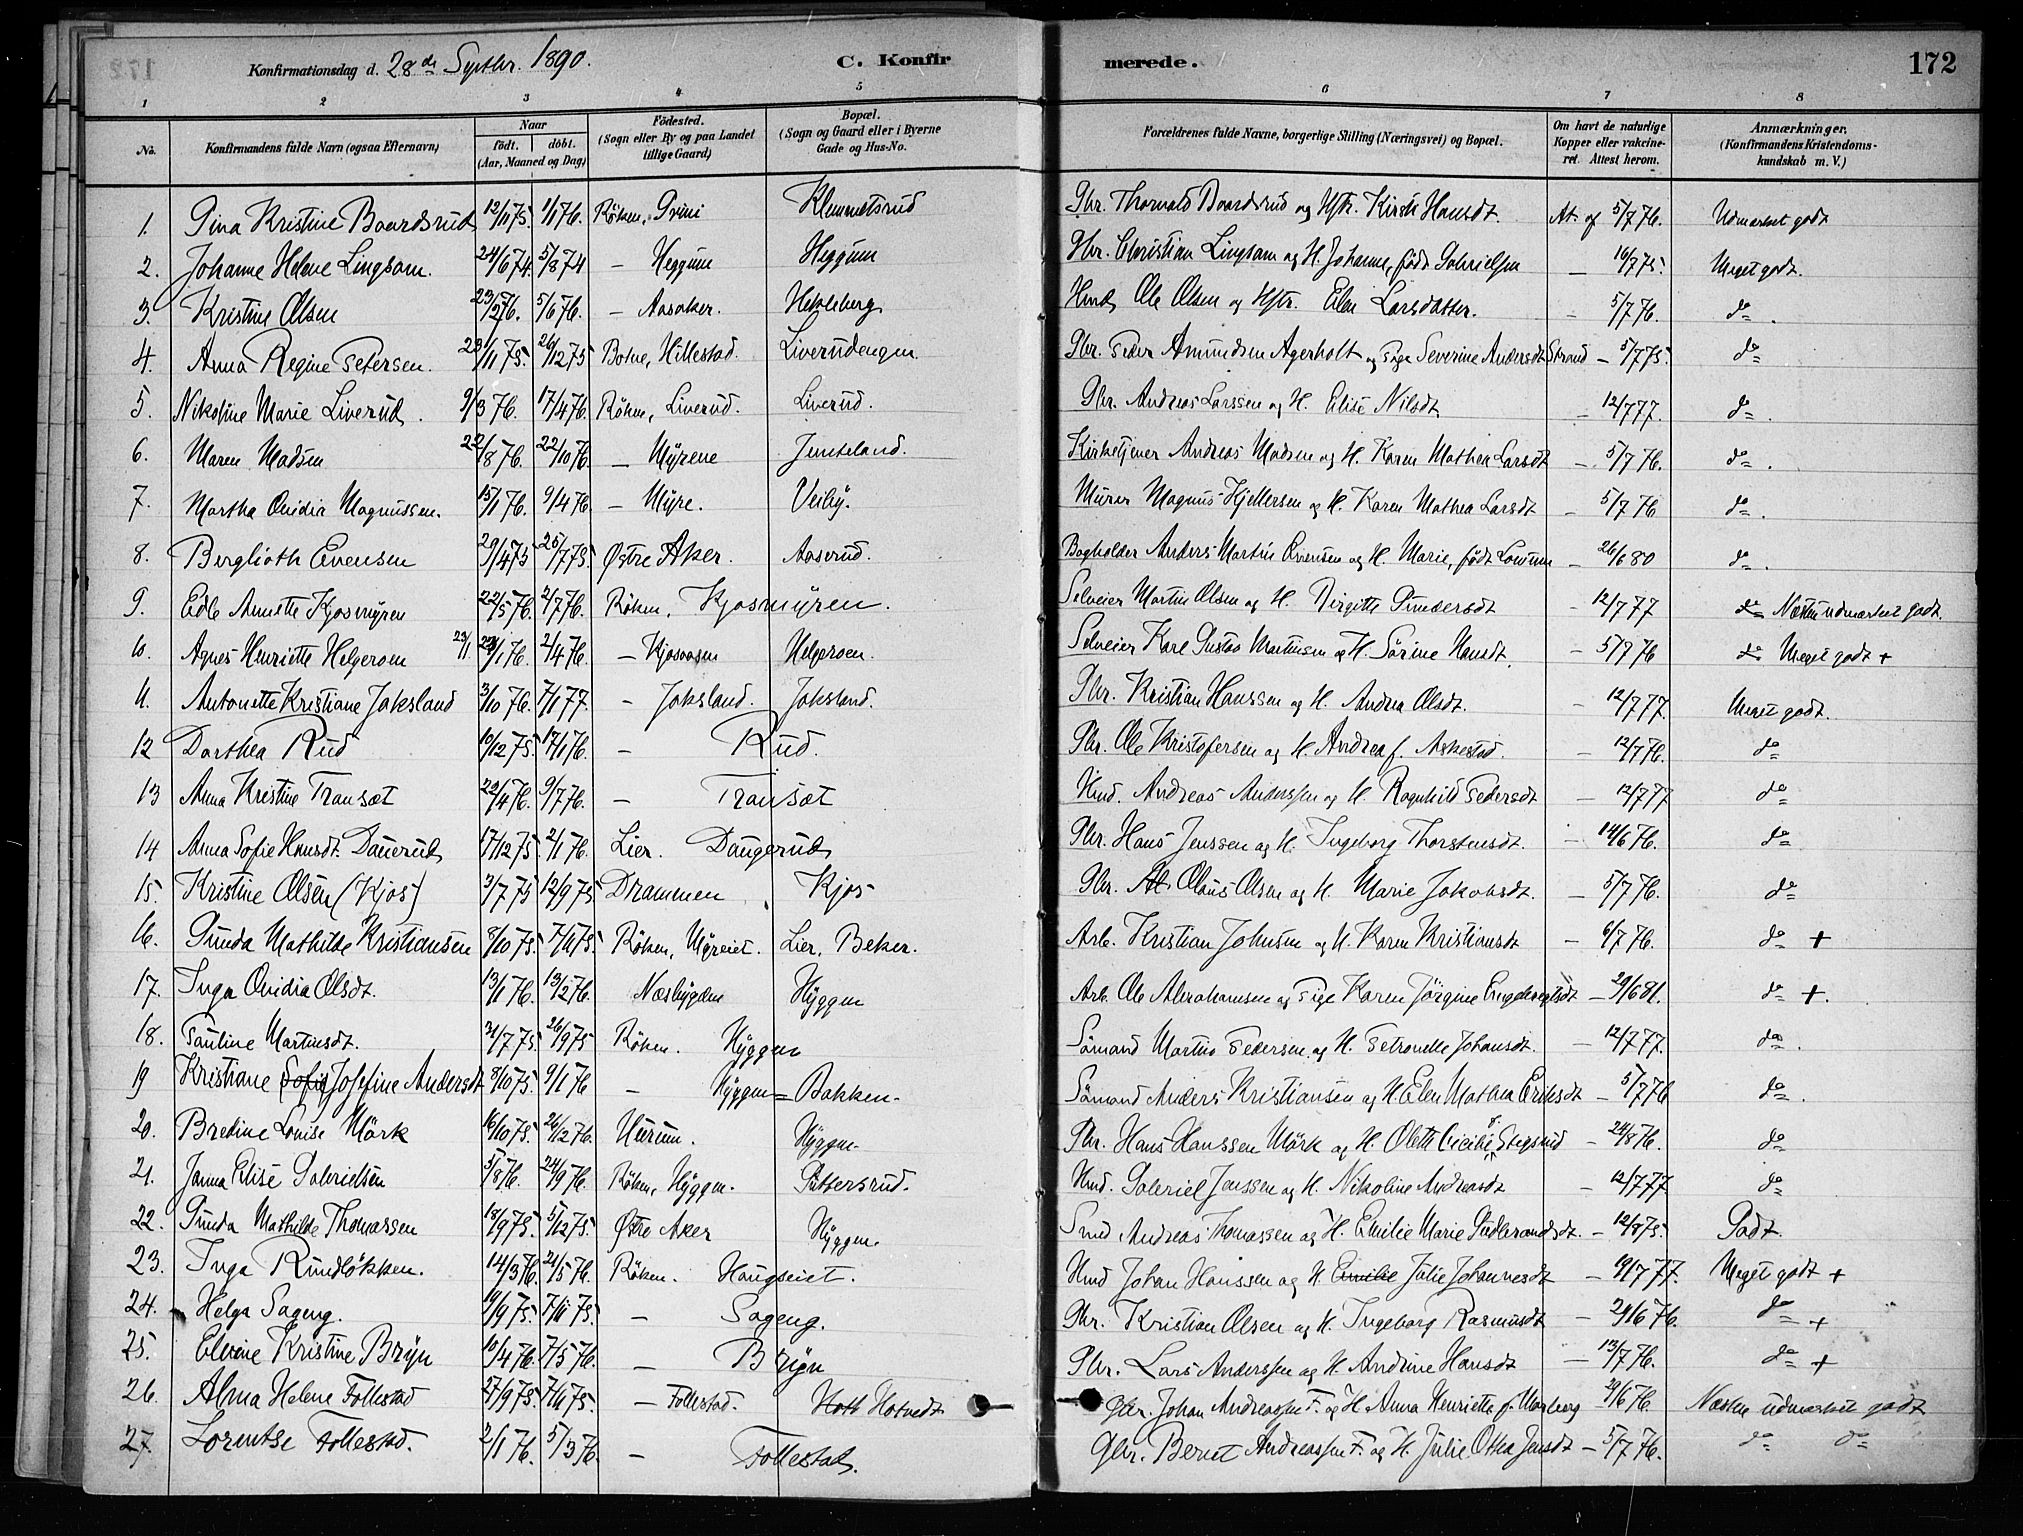 172
Konfirmationsdag d. 28de Septbr. 1890. C. Konfirmerede.
1 2 3 4 5 6 7 8
No. Konfirmandens fulde Navn (ogsaa Efternavn) Naar født. døbt. (Aar, Maaned og Dag) Fødested. (Sogn eller By og paa Landet tillige Gaard) Bopæl. (Sogn og Gaard eller i Byerne Gade og Hus-No. Forældrenes fulde Navne, borgerlige Stilling (Næringsvei) og Bopæl. Om havt de naturlige Kopper eller vakcineret. Attest herom. Anmærkninger. (Konfirmandens Kristendomskundskab m. V.)
1. Gina Kristine Baardsrud 12/11 75. 1/1 76. Röken, Grini Klemmetsrud Gbr. Thorvald Baardsrud og Hstr. Kirsti Hansdt. At. af 5/7 76. Udmærket godt
2. Johanne Helene Lingsom. 24/6 74. 5/8 74 — Heggum Heggum Gbr. Christian Lingsom og H. Johanne, född Gabrielsen — 16/7 75. Meget godt.
3. Kristine Olsen 23/2 76. 5/6 76. — Aasaker. Hekleberg Hmd Ole Olsen og Hstr. Elen Larsdatter. — 5/7 76. do.
4. Anna Regine Petersen. 23/11 75. 26/12 75 Botne, Hillestad. Liverudengen. Gbr. Peder Amundsen Agerholt og Pige Severine Andersdt Strand — 5/7 75. do
5. Nikoline Marie Liverud. 9/3 76. 17/4 76. Röken, Liverud. Liverud. Gbr. Andreas Larssen og H. Elise Nilsdt — 12/7 77. do
6. Maren Madsen 22/8 76. 22/10 76. — Myrene Jemteland. Kirketjener Andreas Madsen og H. Karen Mathea Larsdt — 5/7 76. do.
7. Martha Ovidia Magnussen. 15/1 76. 9/4 76. — Myre. Veiby. Murer Magnus Kjellersen og H. Karen Mathea Larsdt — 5/7 76 do.
8. Berglioth Evensen 29/4 75 25/7 75. Østre Aker. Aaserud. Bogholder Anders Martin Evensen og H. Marie, født — 26/6 80 do.
9. Edle Annette Kjosmyren 22/5 76. 2/7 76. Röken, Kjosmyren. Selveier Martin Olsen og H. Birgitte Gundersdt — 12/7 77 do Næsten udmærket godt.
10. Agnes Henriette Helgeroen 23/1 1 76. 2/4 76. — Kjosaasen Helgeroen. Selveier Karl Gustav Martinsen og H. Sörine Hansdt. — 5/7 76 do Meget godt +
11. Antonette Kristiane Jaksland 3/10 76. 7/1 77. — Jaksland. Jaksland. Gbr. Kristian Hanssen og H. Andrea Olsdt. — 12/7 77 Meget godt.
12 Dorthea Rud 10/12 75. 17/1 76. — Rud. Gbr. Ole Kristofersen og H. Andrea f. Askestad. — 12/7 76. do
13 Anna Kristine Transæt 22/4 76. 9/7 76. — Transæt Hmd. Andreas Anderssen og H. Ragnhild Pedersdt — 12/7 77 do
14 Anna Sofie Hansdt. Dauerud 17/12 75. 2/1 76. Lier. Daugerud Gbr. Hans Jenssen og H. Ingeborg Thorstensdt. — 14/6 76. do
15. Kristine Olsen (Kjos) 3/7 75 12/9 75 Drammen Kjos Gbr. Olaus Olsen og H. Marie Jakobsdt. — 5/7 76. do
16. Gunda Mathilde Kristiansen 8/10 75. 7/11 75. Röken, Myreiet. Lier, Beker. Arb. Kristian Johnsen og H. Karen Kristiansdt — 6/7 76. do +
17. Inga Ovidia Olsdt. 13/1 76. 13/2 76. Næsbygden Hyggen Arb. Ole Abrahamsen og Pige Karen Jörgine Engebregtsdt — 29/6 81. do +.
18. Pauline Martinsdt. 31/7 75. 26/9 75 Röken. Hyggen Sömand Martin Pedersen og H. Petronelle Johansdt. — 12/7 77. do.
19 Kristiane (Sofie) Josefine Andersdt 8/10 75. 9/1 76 — Hyggen=Bakken. Sömand Anders Kristiansen og H. Elen Mathea Eriksdt — 5/7 76 do.
20. Bredine Louise Mörk 16/10 75. 26/12 76. Hurum. Hyggen. Gbr. Hans Hanssen Mörk og H. Olette Cecilie f. Stegsrud — 24/8 76. do
21. Janna Elise Gabrielsen 5/8 76. 24/9 76. Röken, Hyggen. Guttersrud. Hmd. Gabriel Jenssen og H. Nikoline Andreasdt — 12/7 77 do
22. Gunda Mathilde Thomassen 18/9 75. 5/12 75. Østre Aker Hyggen. Smed Andreas Thomassen og H. Emilie Marie — 12/8 75. Godt.
23. Inga Rundlökken. 14/3 76. 21/5 76. Röken. Haugseiet. Hmd Johan Hanssen og H. Emilie Julie Johannesdt — 9/7 77. Meget godt +
24. Helga Sageng. 9/9 75. 7/11 75. — Sageng. Gbr. Kristian Olsen og H. Ingeborg Rasmusdt — 29/6 76. do +
25. Elevine Kristine Bryn 10/4 76. 7/5 76. — Bryn Gbr. Lars Anderssen og H. Andrine Hansdt — 13/7 76. do +
26. Alma Helene Follestad 27/9 75. 7/11 75. — Follestad. Hoth Hotvedt Gbr. Johan Andreassen F. og H. Anna Henriette f. Morberg 29/6 76. Næsten udmærket godt
27. Lorentse Follestad. 2/1 76. 5/3 76. — Follestad. Gbr. Bernt Andreassen F. og H. Julie Othea Jensdt — 5/7 76. do do